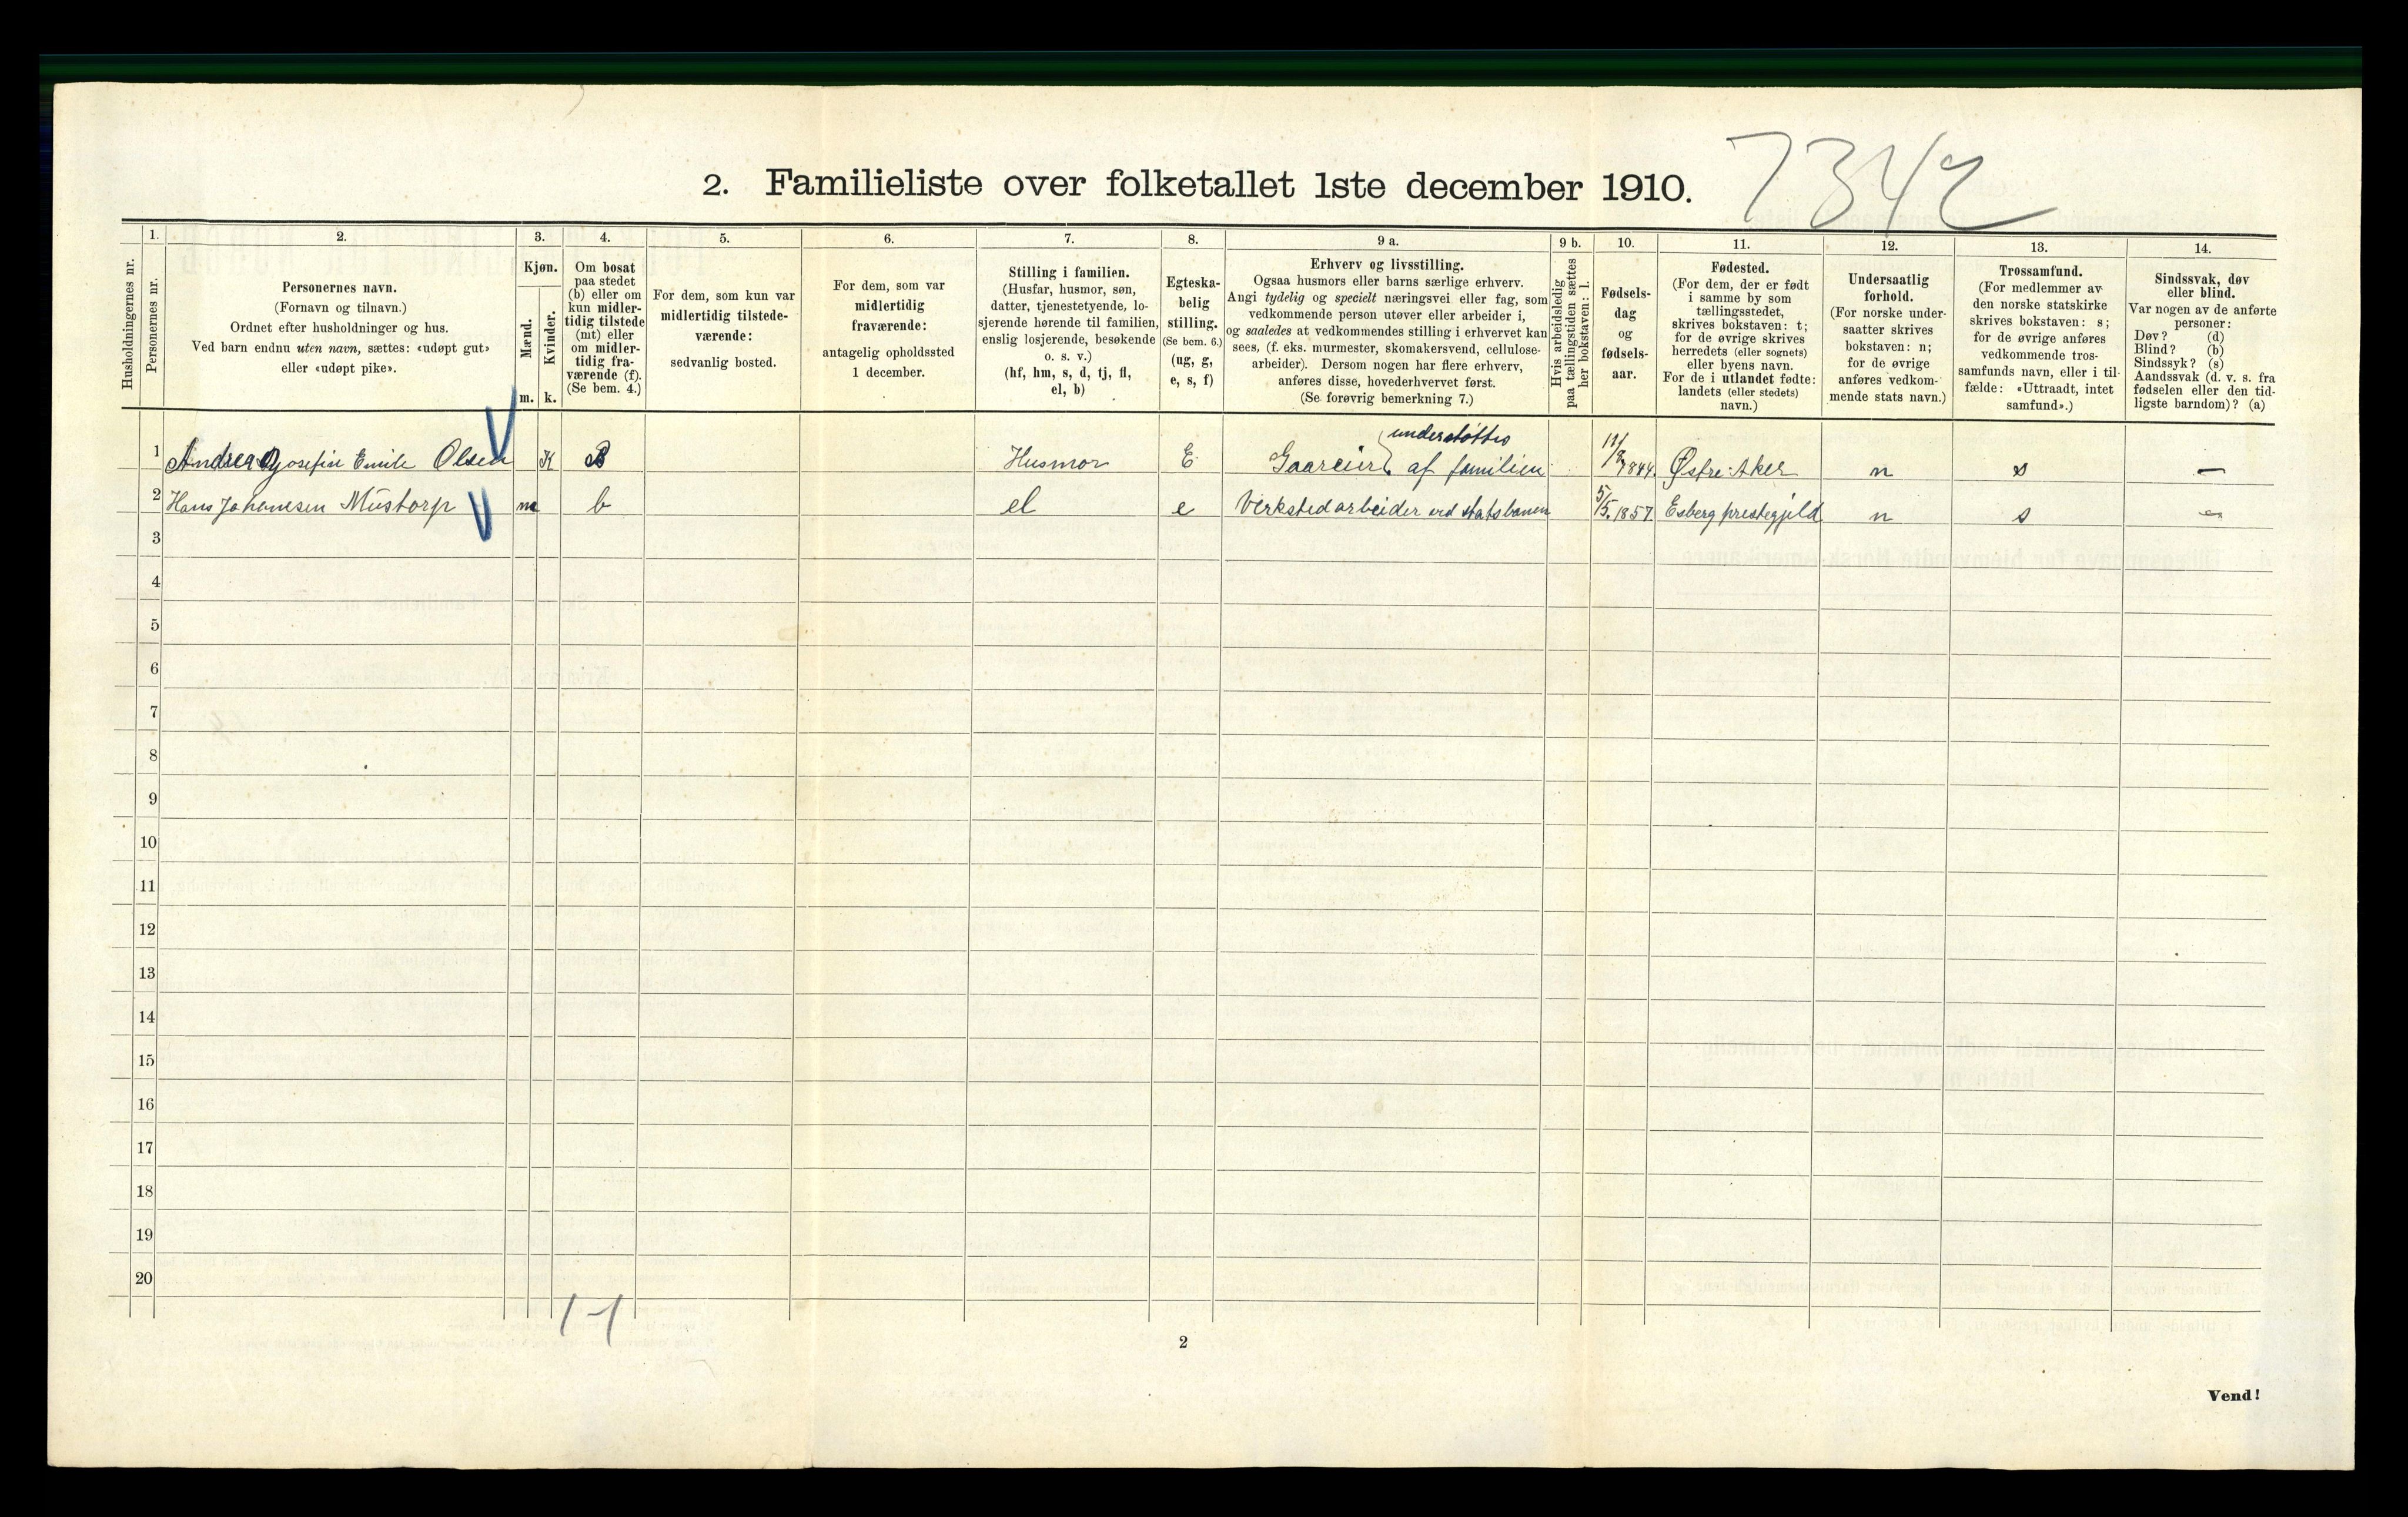 7342
2. Familieliste over folketallet 1ste december 1910.
Husholdningernes nr.
1.
Personernes nr.
2.
Personernes navn.
(Fornavn og tilnavn.)
Ordnet efter husholdninger og hus.
Ved barn endnu uten navn, sættes: «udøpt gut»
eller «udøpt pike».
3.
Kjøn.
Mænd.
m.
Kvinder.
k.
4.
Om bosat
paa stedet
(b) eller om
kun midler-
tidig tilstede
(mt) eller
om midler-
tidig fra-
værende (f).
(Se bem. 4.)
5.
For dem, som kun var
midlertidig tilstede-
værende:
sedvanlig bosted.
6.
For dem, som var
midlertidig
fraværende:
antagelig opholdssted
1 december.
7.
Stilling i familien.
(Husfar, husmor, søn,
datter, tjenestetyende, lo-
sjerende hørende til familien,
enslig losjerende, besøkende
o. s. v.)
(hf, hm, s, d, tj, fl,
el, b)
8.
Egteska-
belig
stilling.
(Se bem. 6.)
(ug, g,
e, s, f)
9 a.
Erhverv og livsstilling.
Ogsaa husmors eller barns særlige erhverv.
Angi tydelig og specielt næringsvei eller fag, som
vedkommende person utøver eller arbeider i,
og saaledes at vedkommendes stilling i erhvervet kan
sees, (f. eks. murmester, skomakersvend, cellulose-
arbeider). Dersom nogen har flere erhverv,
anføres disse, hovederhvervet først.
(Se forøvrig bemerkning 7.)
9 b.
Hvis arbeidsledig
paa tællingstiden sættes
her bokstaven: l.
10.
Fødsels-
dag
og
fødsels-
aar.
11.
Fødested.
(For dem, der er født
i samme by som
tællingsstedet,
skrives bokstaven: t;
for de øvrige skrives
herredets (eller sognets)
eller byens navn.
For de i utlandet fødte:
landets (eller stedets)
navn.)
12.
Undersaatlig
forhold.
(For norske under-
saatter skrives
bokstaven: n;
for de øvrige
anføres vedkom-
mende stats navn.)
13.
Trossamfund.
(For medlemmer av
den norske statskirke
skrives bokstaven: s;
for de øvrige anføres
vedkommende tros-
samfunds navn, eller i til-
fælde: «Uttraadt, intet
samfund».)
14.
Sindssvak, døv
eller blind.
Var nogen av de anførte
personer:
Døv? (d)
Blind? (b)
Sindssyk? (s)
Aandssvak (d. v. s. fra
fødselen eller den tid-
ligste barndom)? (a)
1 Andrea Josefin Emile Olsen K B Husmor E Gaareier understøttes af familien 1844. Østre Aker n s —
2 Hans Johanesen Mustorp m b el e Verksted arbeider ved statsbanen 5/5. 1857. Esberg prestegjeld n s —
3
4
5
6
7
8
9
10
11
12
13
14
15
16
17
18
19
20
1-1
2
Vend!